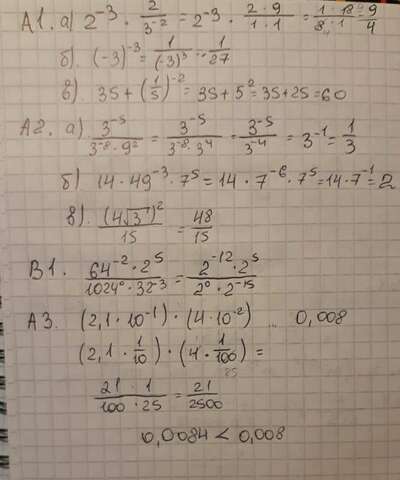 A1. а) 2^-3 · 2/3^-2 = 2^-3 · 2·9/1·1 = 1·18/8·1 = 9/4
б). (-3)^-3 = 1/(-3)^3 = -1/27
в). 35 + (1/5)^-2 = 35 + 5^2 = 35 + 25 = 60
A2. а) 3^-5/3^-8·9^2 = 3^-5/3^-8·3^4 = 3^-5/3^-4 = 3^-1 = 1/3
б) 14 · 49^-3 · 7^5 = 14 · 7^-6 · 7^5 = 14 · 7^-1 = 2
в). (4√3)^2/15 = 48/15
B1. 64^-2 · 2^5/1024^0 · 32^-3 = 2^-12 · 2^5/2^0 · 2^-15
A3. (2,1 · 10^-1) · (4 · 10^-2) ... 0,008
(2,1 · 1/10) · (4 · 1/100) =
25
21 · 1/100 · 25 = 21/2500
0,0084 < 0,008